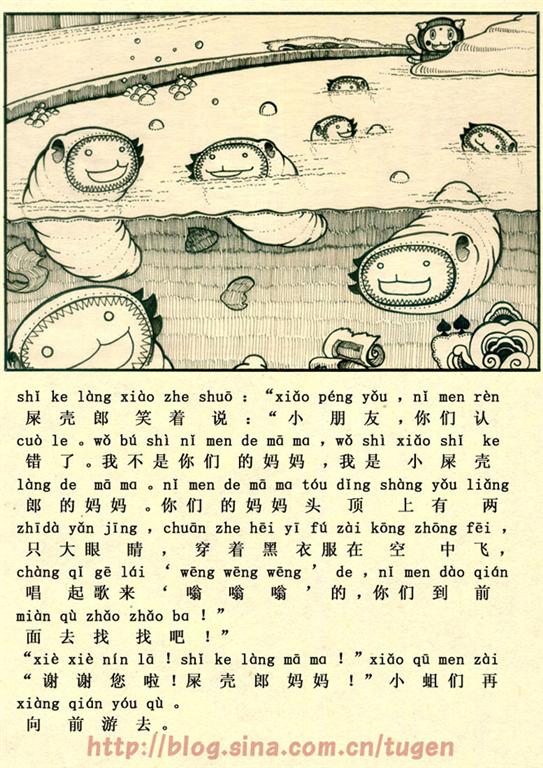 shǐ ke làng xiào zhe shuō：“xiǎo péng yǒu，nǐ men rèn
屎壳郎笑着说：“小朋友，你们认
cuò le。wǒ bú shì nǐ men de mā ma，wǒ shì xiǎo shǐ ke
错了。我不是你们的妈妈，我是小屎壳
làng de mā ma。nǐ men de mā ma tóu dǐng shàng yǒu liǎng
郎的妈妈。你们的妈妈头顶上有两
zhīdà yǎn jīng，chuān zhe hēi yī fú zài kōng zhōng fēi，
只大眼睛，穿着黑衣服在空中飞，
chàng qǐ gē lái‘wēng wēng wēng’de，nǐ men dào qián
唱起歌来‘嗡嗡嗡’的，你们到前
miàn qù zhǎo zhǎo ba！”
面去找找吧！”
“xiè xiè nín lā！shǐ ke làng mā ma！”xiǎo qū men zài
“谢谢您啦！屎壳郎妈妈！”小蛆们再
xiàng qián yóu qù。
向前游去。
http://blog.sina.com.cn/tugen